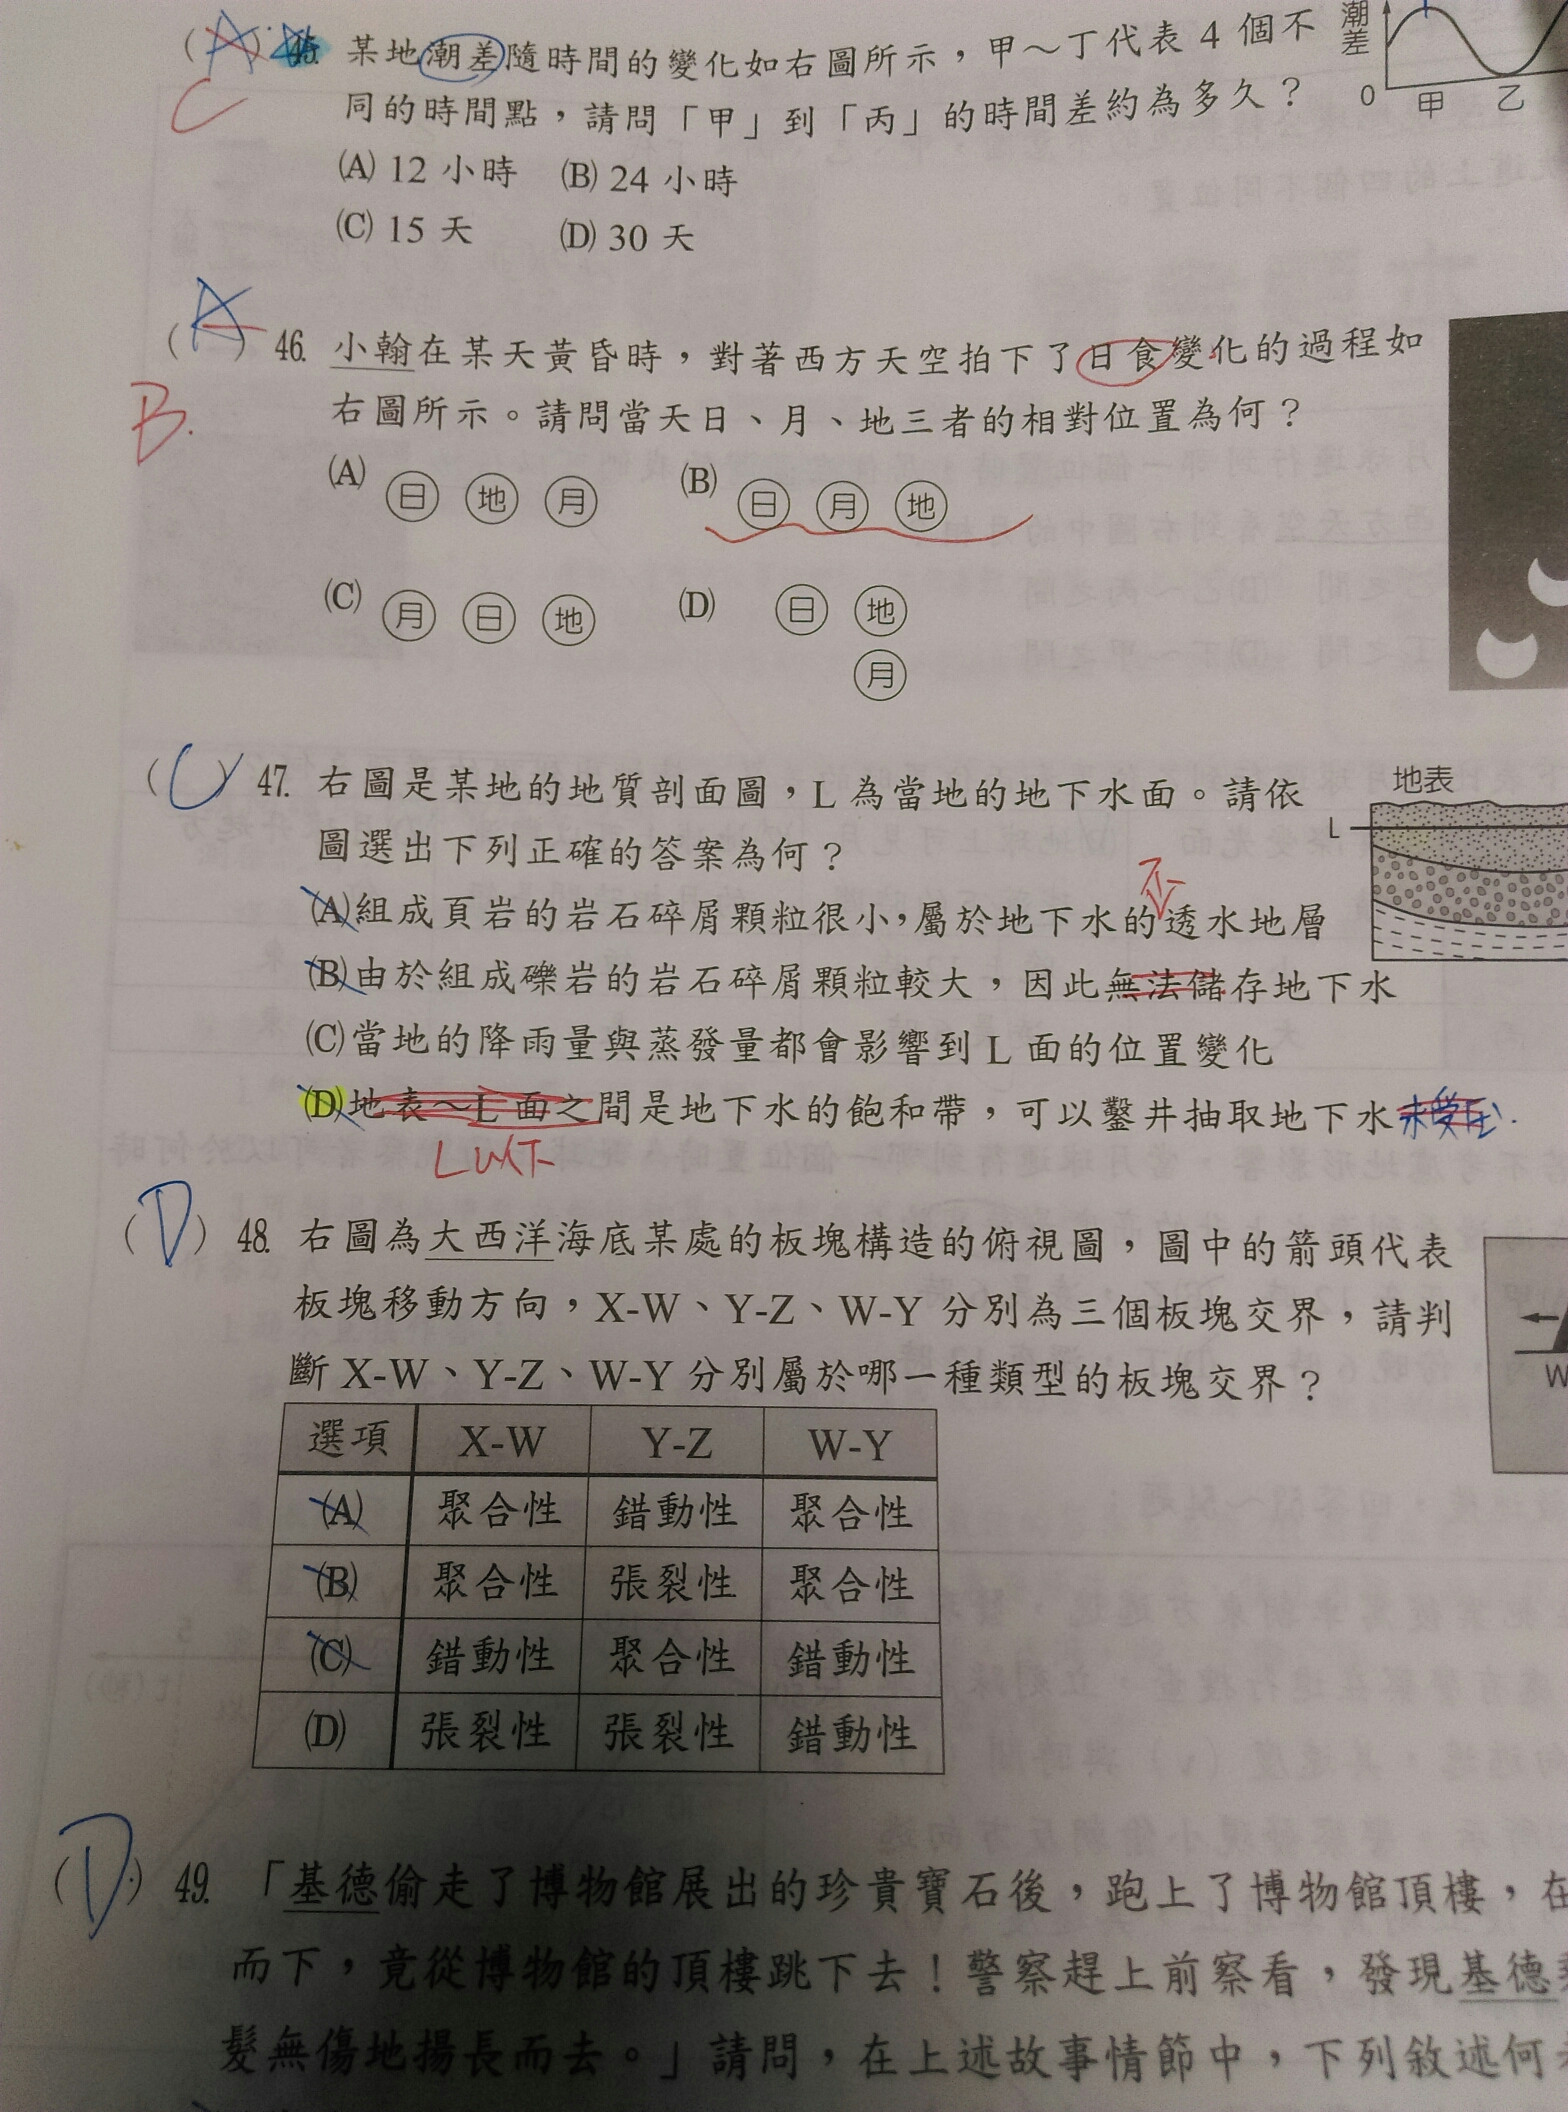 (A) 45. 某地潮差隨時間的變化如右圖所示，甲～丁代表 4 個不
C 同的時間點，請問「甲」到「丙」的時間差約為多久？
(A) 12 小時 (B) 24 小時
(C) 15 天 (D) 30 天
潮差
0 甲 乙
(A) 46. 小翰在某天黃昏時，對著西方天空拍下了日食變化的過程如
B. 右圖所示。請問當天日、月、地三者的相對位置為何？
(A) 日 地 月 (B) 日 月 地
(C) 月 日 地 (D) 日 地
月
(C) 47. 右圖是某地的地質剖面圖，L 為當地的地下水面。請依
圖選出下列正確的答案為何？
地表
L
不
(A)組成頁岩的岩石碎屑顆粒很小，屬於地下水的透水地層
(B)由於組成礫岩的岩石碎屑顆粒較大，因此無法儲存地下水
(C)當地的降雨量與蒸發量都會影響到 L 面的位置變化
(D)地表～L 面之間是地下水的飽和帶，可以鑿井抽取地下水
L以下
(D) 48. 右圖為大西洋海底某處的板塊構造的俯視圖，圖中的箭頭代表
板塊移動方向，X-W、Y-Z、W-Y 分別為三個板塊交界，請判
斷 X-W、Y-Z、W-Y 分別屬於哪一種類型的板塊交界？
W
選項 X-W Y-Z W-Y
(A) 聚合性 錯動性 聚合性
(B) 聚合性 張裂性 聚合性
(C) 錯動性 聚合性 錯動性
(D) 張裂性 張裂性 錯動性
(D) 49. 「基德偷走了博物館展出的珍貴寶石後，跑上了博物館頂樓，在
而下，竟從博物館的頂樓跳下去！警察趕上前察看，發現基德
髮無傷地揚長而去。」請問，在上述故事情節中，下列敘述何